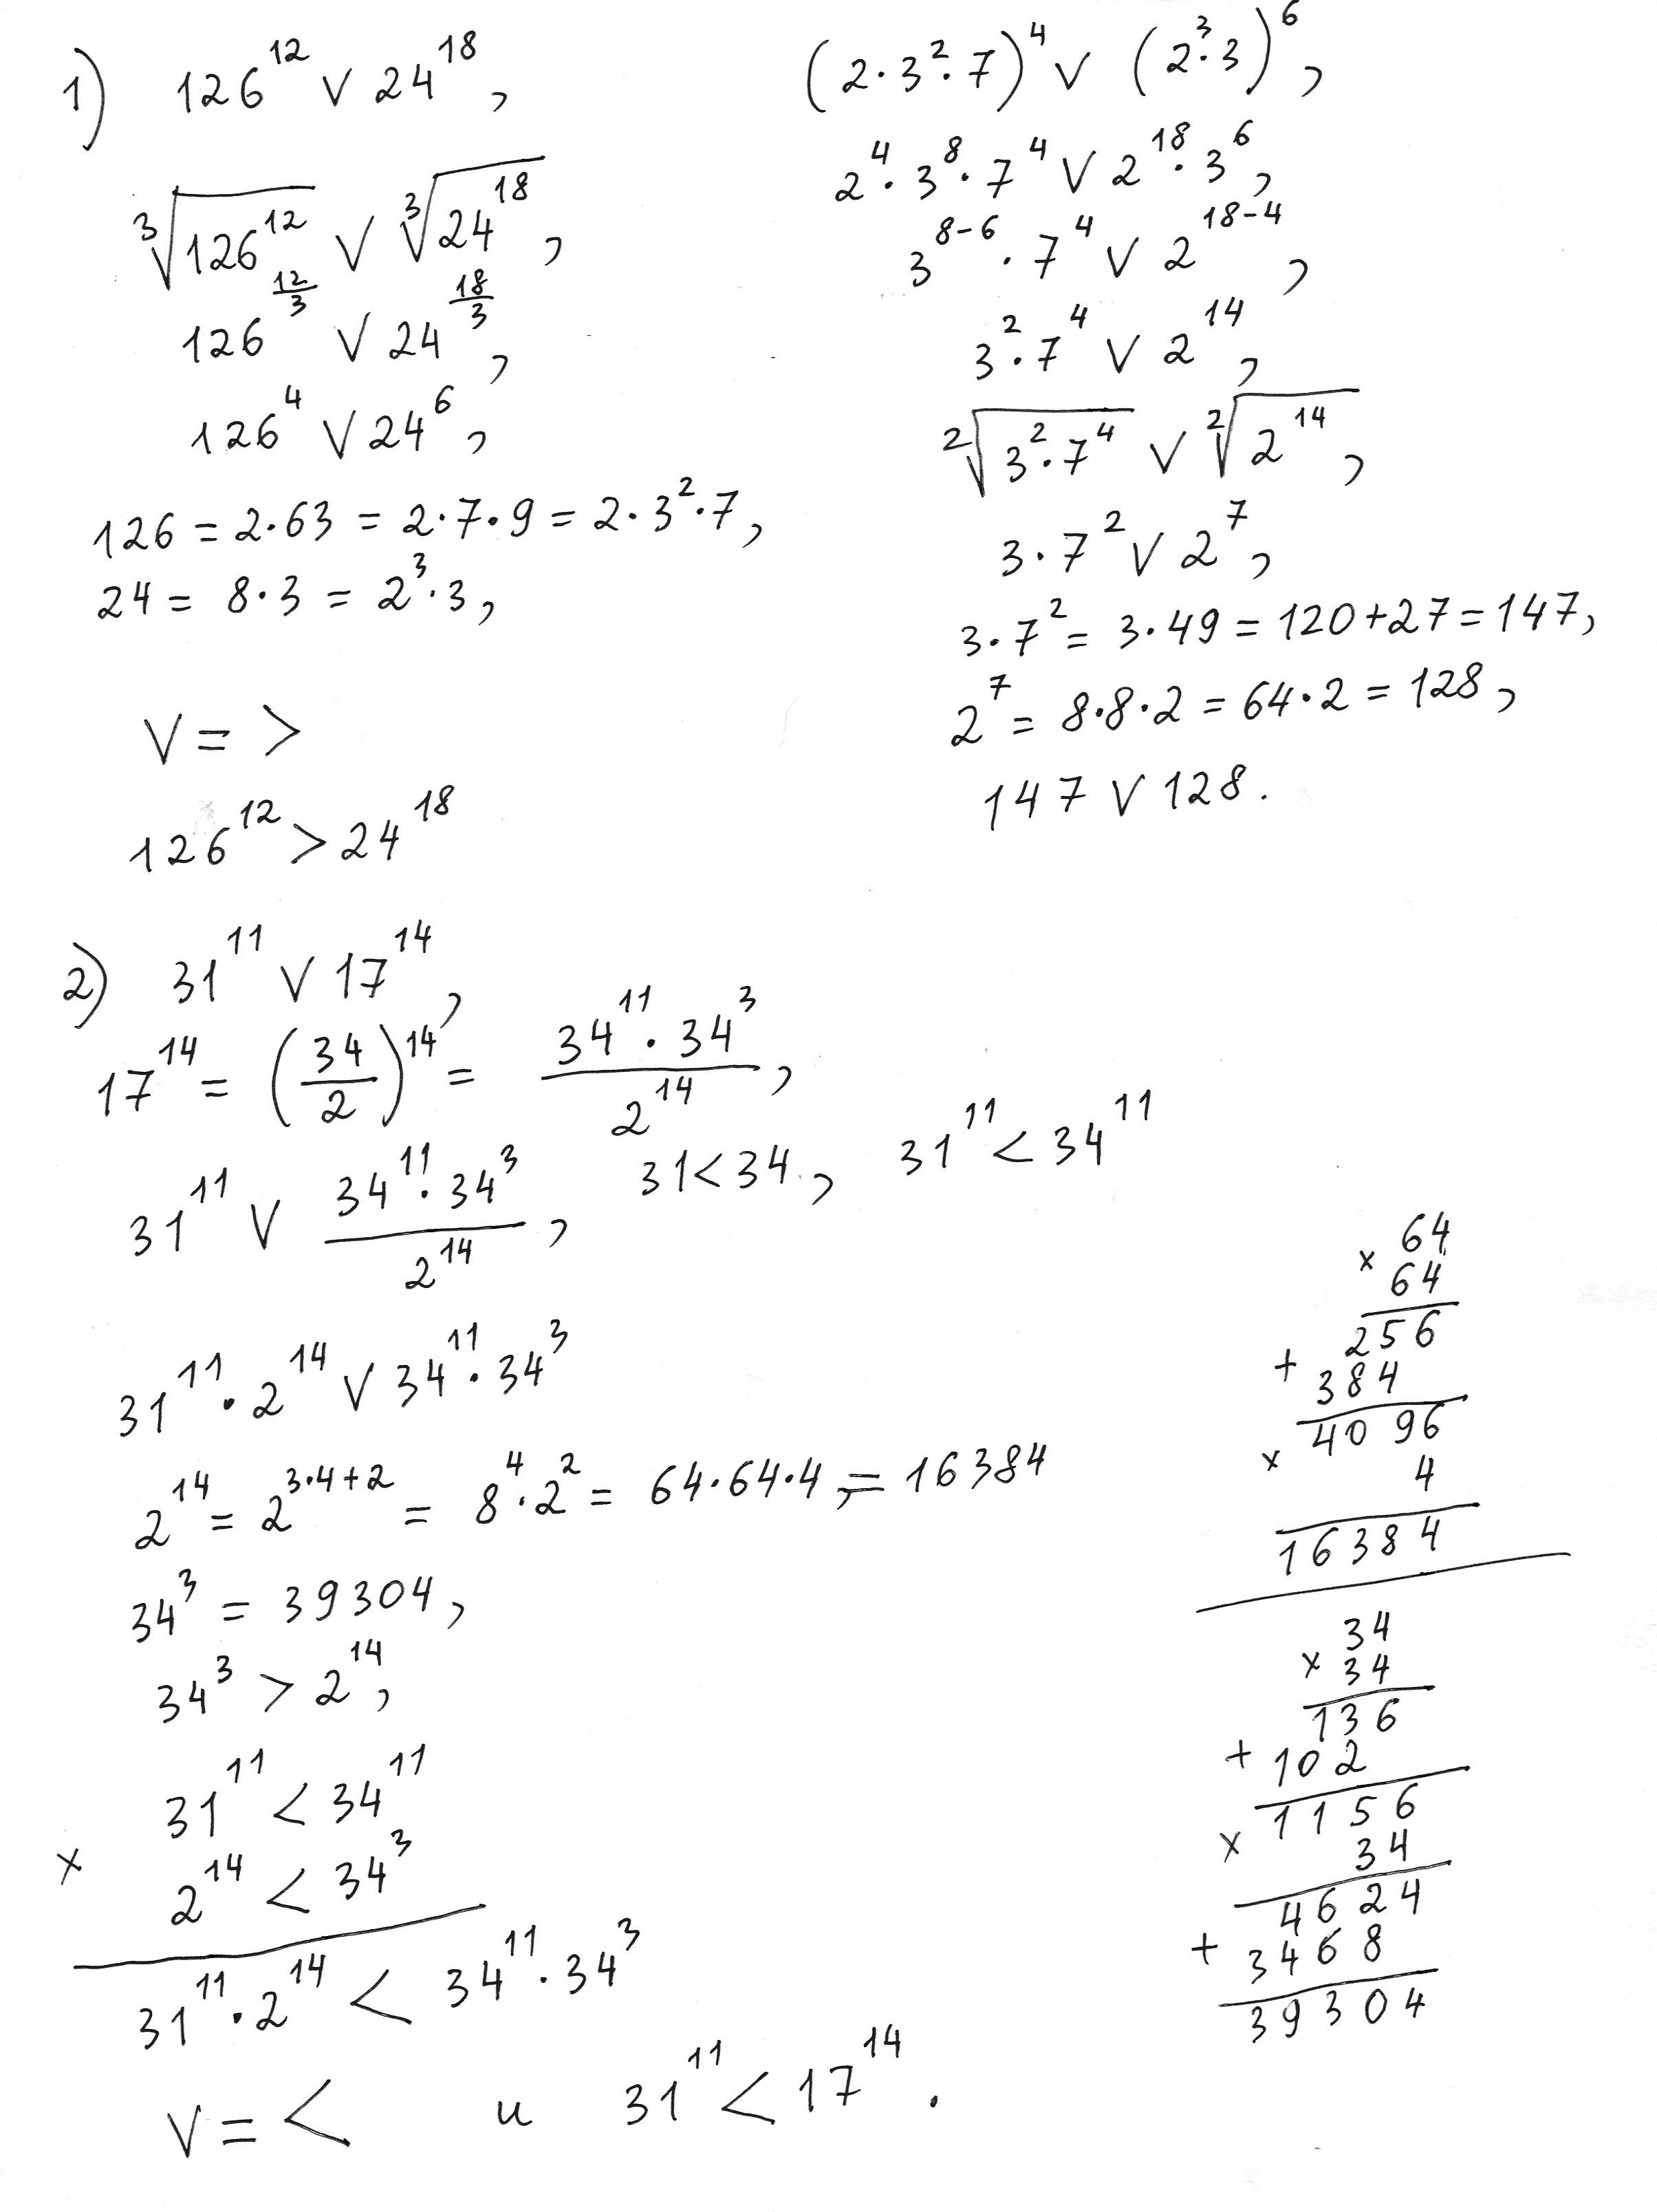 1) 126^12 V 24^18,
∛(126^12) V ∛(24^18),
126^(12/3) V 24^(18/3),
126^4 V 24^6,
126 = 2·63 = 2·7·9 = 2·3^2·7,
24 = 8·3 = 2^3·3,
V = >
126^12 > 24^18
(2·3^2·7)^4 V (2^3·3)^6,
2^4·3^8·7^4 V 2^18·3^6,
3^(8-6)·7^4 V 2^(18-4),
3^2·7^4 V 2^14,
²√(3^2·7^4) V ²√(2^14),
3·7^2 V 2^7,
3·7^2 = 3·49 = 120+27 = 147,
2^7 = 8·8·2 = 64·2 = 128,
147 V 128.
2) 31^11 V 17^14,
17^14 = (34/2)^14 = (34^11·34^3)/2^14,
31^11 V (34^11·34^3)/2^14, 31<34, 31^11 < 34^11
31^11·2^14 V 34^11·34^3
2^14 = 2^(3·4+2) = 8^4·2^2 = 64·64·4, = 16384
34^3 = 39304,
34^3 > 2^14,
31^11 < 34^11
×
2^14 < 34^3
31^11·2^14 < 34^11·34^3
V = < и 31^11 < 17^14.
× 64
64
256
+ 384
4096
× 4
16384
34
× 34
136
+ 102
1156
× 34
4624
+ 3468
39304